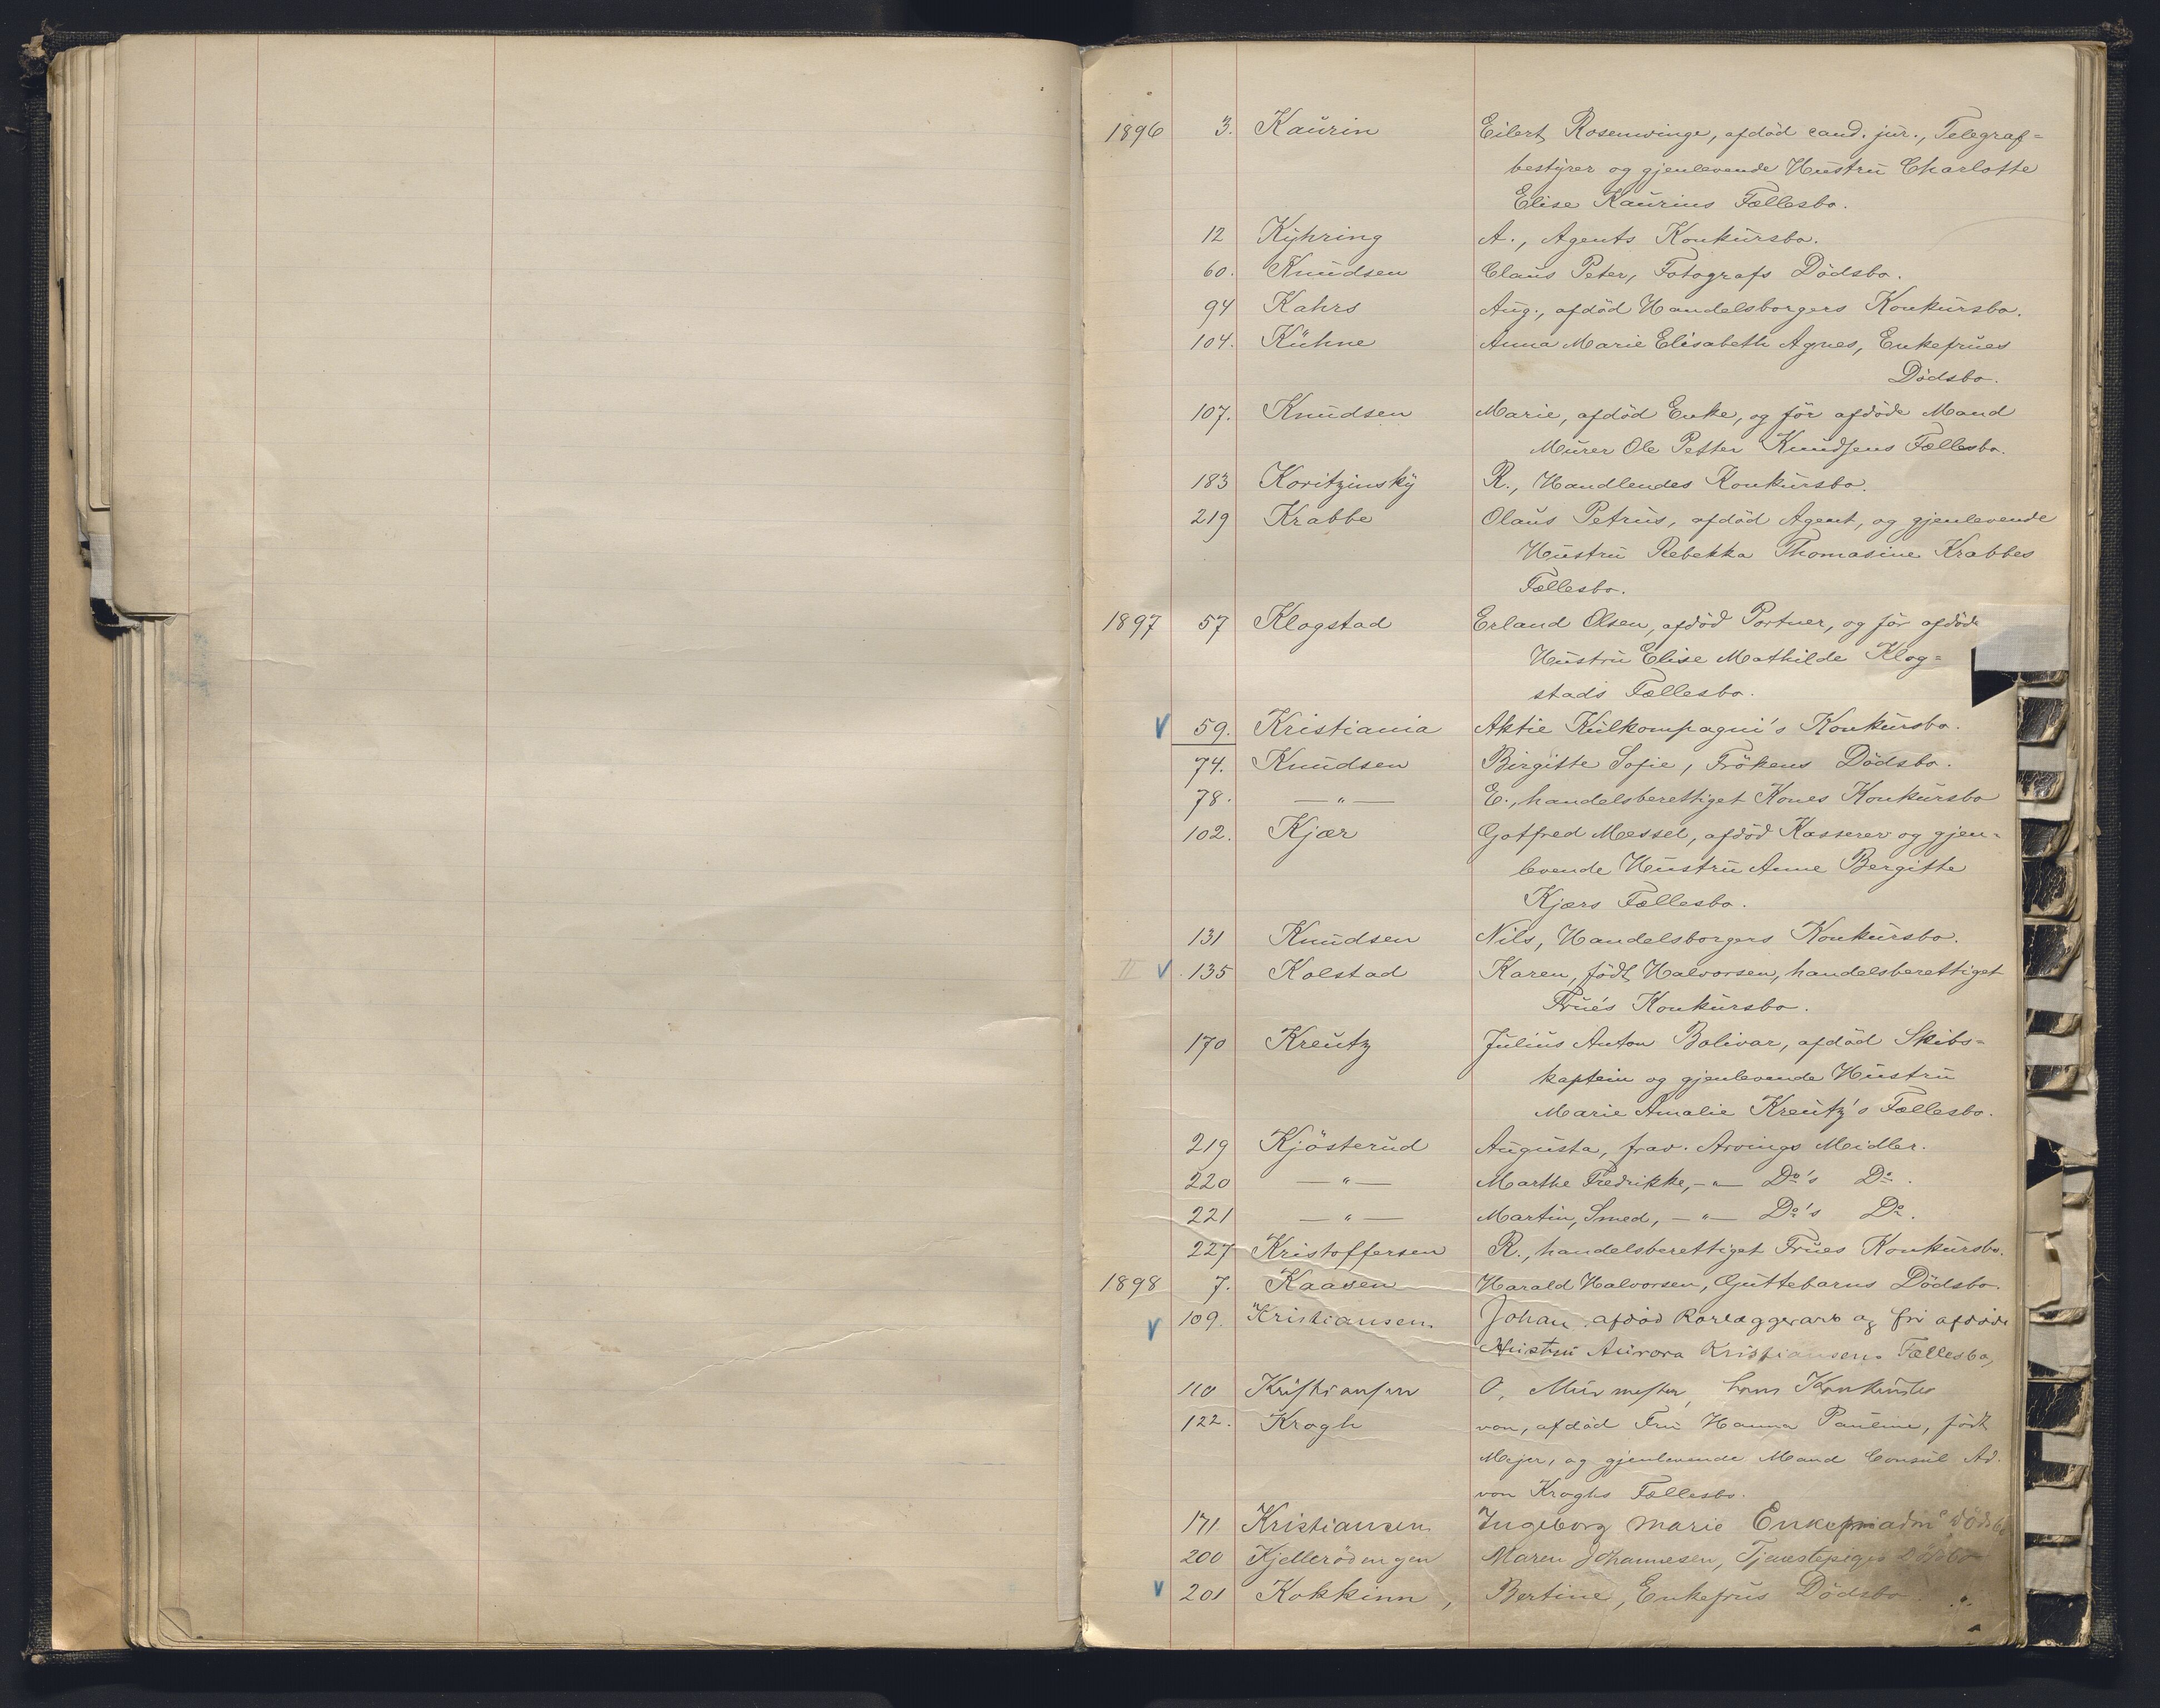 1896 3. Kaurin Eilert Rosenwinge, afdöd cand. jur., Telegraf=
bestyrer og gjenlevende Hustru Charlotte
Elise Kaurins Fællesbo.
12 Kyhring A., Agents Konkursbo.
60. Knudsen Claus Peter, Fotografs Dödsbo.
94 Kahrs Aug., afdöd Handelsborgers Konkursbo.
104. Kühne Anna Marie Elisabeth Agnes, Enkefrues
Dödsbo.
107. Knudsen Marie, afdöd Enke, og før afdöde Mand
Murer Ole Petter Knudsens Fællesbo.
183 Koritzinsky R., Handlendes Konkursbo.
219 Krabbe Olaus Petrus, afdöd Agent, og gjenlevende
Hustru Rebekka Thomasine Krabbes
Fællesbo.
1897 57 Klogstad Erland Olsen, afdöd Portner, og før afdöde
Hustru Elise Mathilde Klog=
stads Fællesbo.
V 59. Kristiania Aktie Kulkompagni's Konkursbo.
74. Knudsen Birgitte Sofie, Frökens Dödsbo.
78. — " — E., handelsberettiget Kones Konkursbo
102. Kjær Gotfred Messel, afdöd Kasserer og gjen=
levende Hustru Anne Bergitte
Kjærs Fællesbo.
131 Knudsen Nils, Handelsborgers Konkursbo.
II V 135 Kolstad Karen, födt Halvorsen, handelsberettiget
Frue's Konkursbo.
170 Kreutz Julius Anton Bolivar, afdöd Skibs=
kaptein og gjenlevende Hustru
Marie Amalie Kreutz's Fællesbo.
219 Kjösterud Augusta, frav. Arvings Meidler.
220 — " — Marthe Fredrikke, — " — Do's Do.
221 — " — Martin, Smed, — " — Do's Do.
227 Kristoffersen R., handelsberettiget Frues Konkursbo.
1898 7. Kaasen Harald Halvorsen, Guttebarns Dödsbo.
V 109. Kristiansen Johan afdöd Rørlæggerarb og før afdøde
Hustru Aurora Kristiansens Fællesbo,
110 Kristiansen O, Murmester, hans Konkursbo
122. Krogh von, afdöd Fru Hanna Pauline, födt
Mejer, og gjenlevende Mand Consul Ad.
von Kroghs Fællesbo.
171. Kristiansen Ingeborg Marie Dödsbo
200 Kjellerödengen Maren Johannesen, Tjenestepiges Dödsbo
V 201 Kokkinn, Bertine, Enkefrus Dödsbo